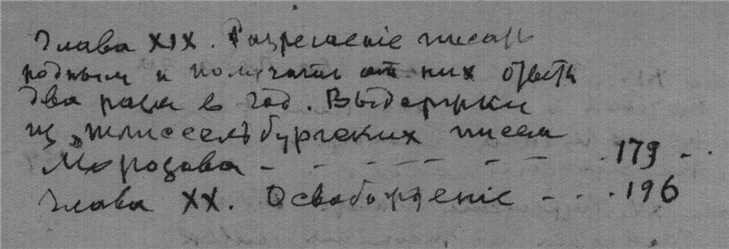 Глава XIX. Разрешеніе писать
родным и получать от них ответы
два раза в год. Выдержки
из „Шлиссельбургских писем
Морозова - - - - - - - 179 -
Глава XX. Освобожденіе - - . 196